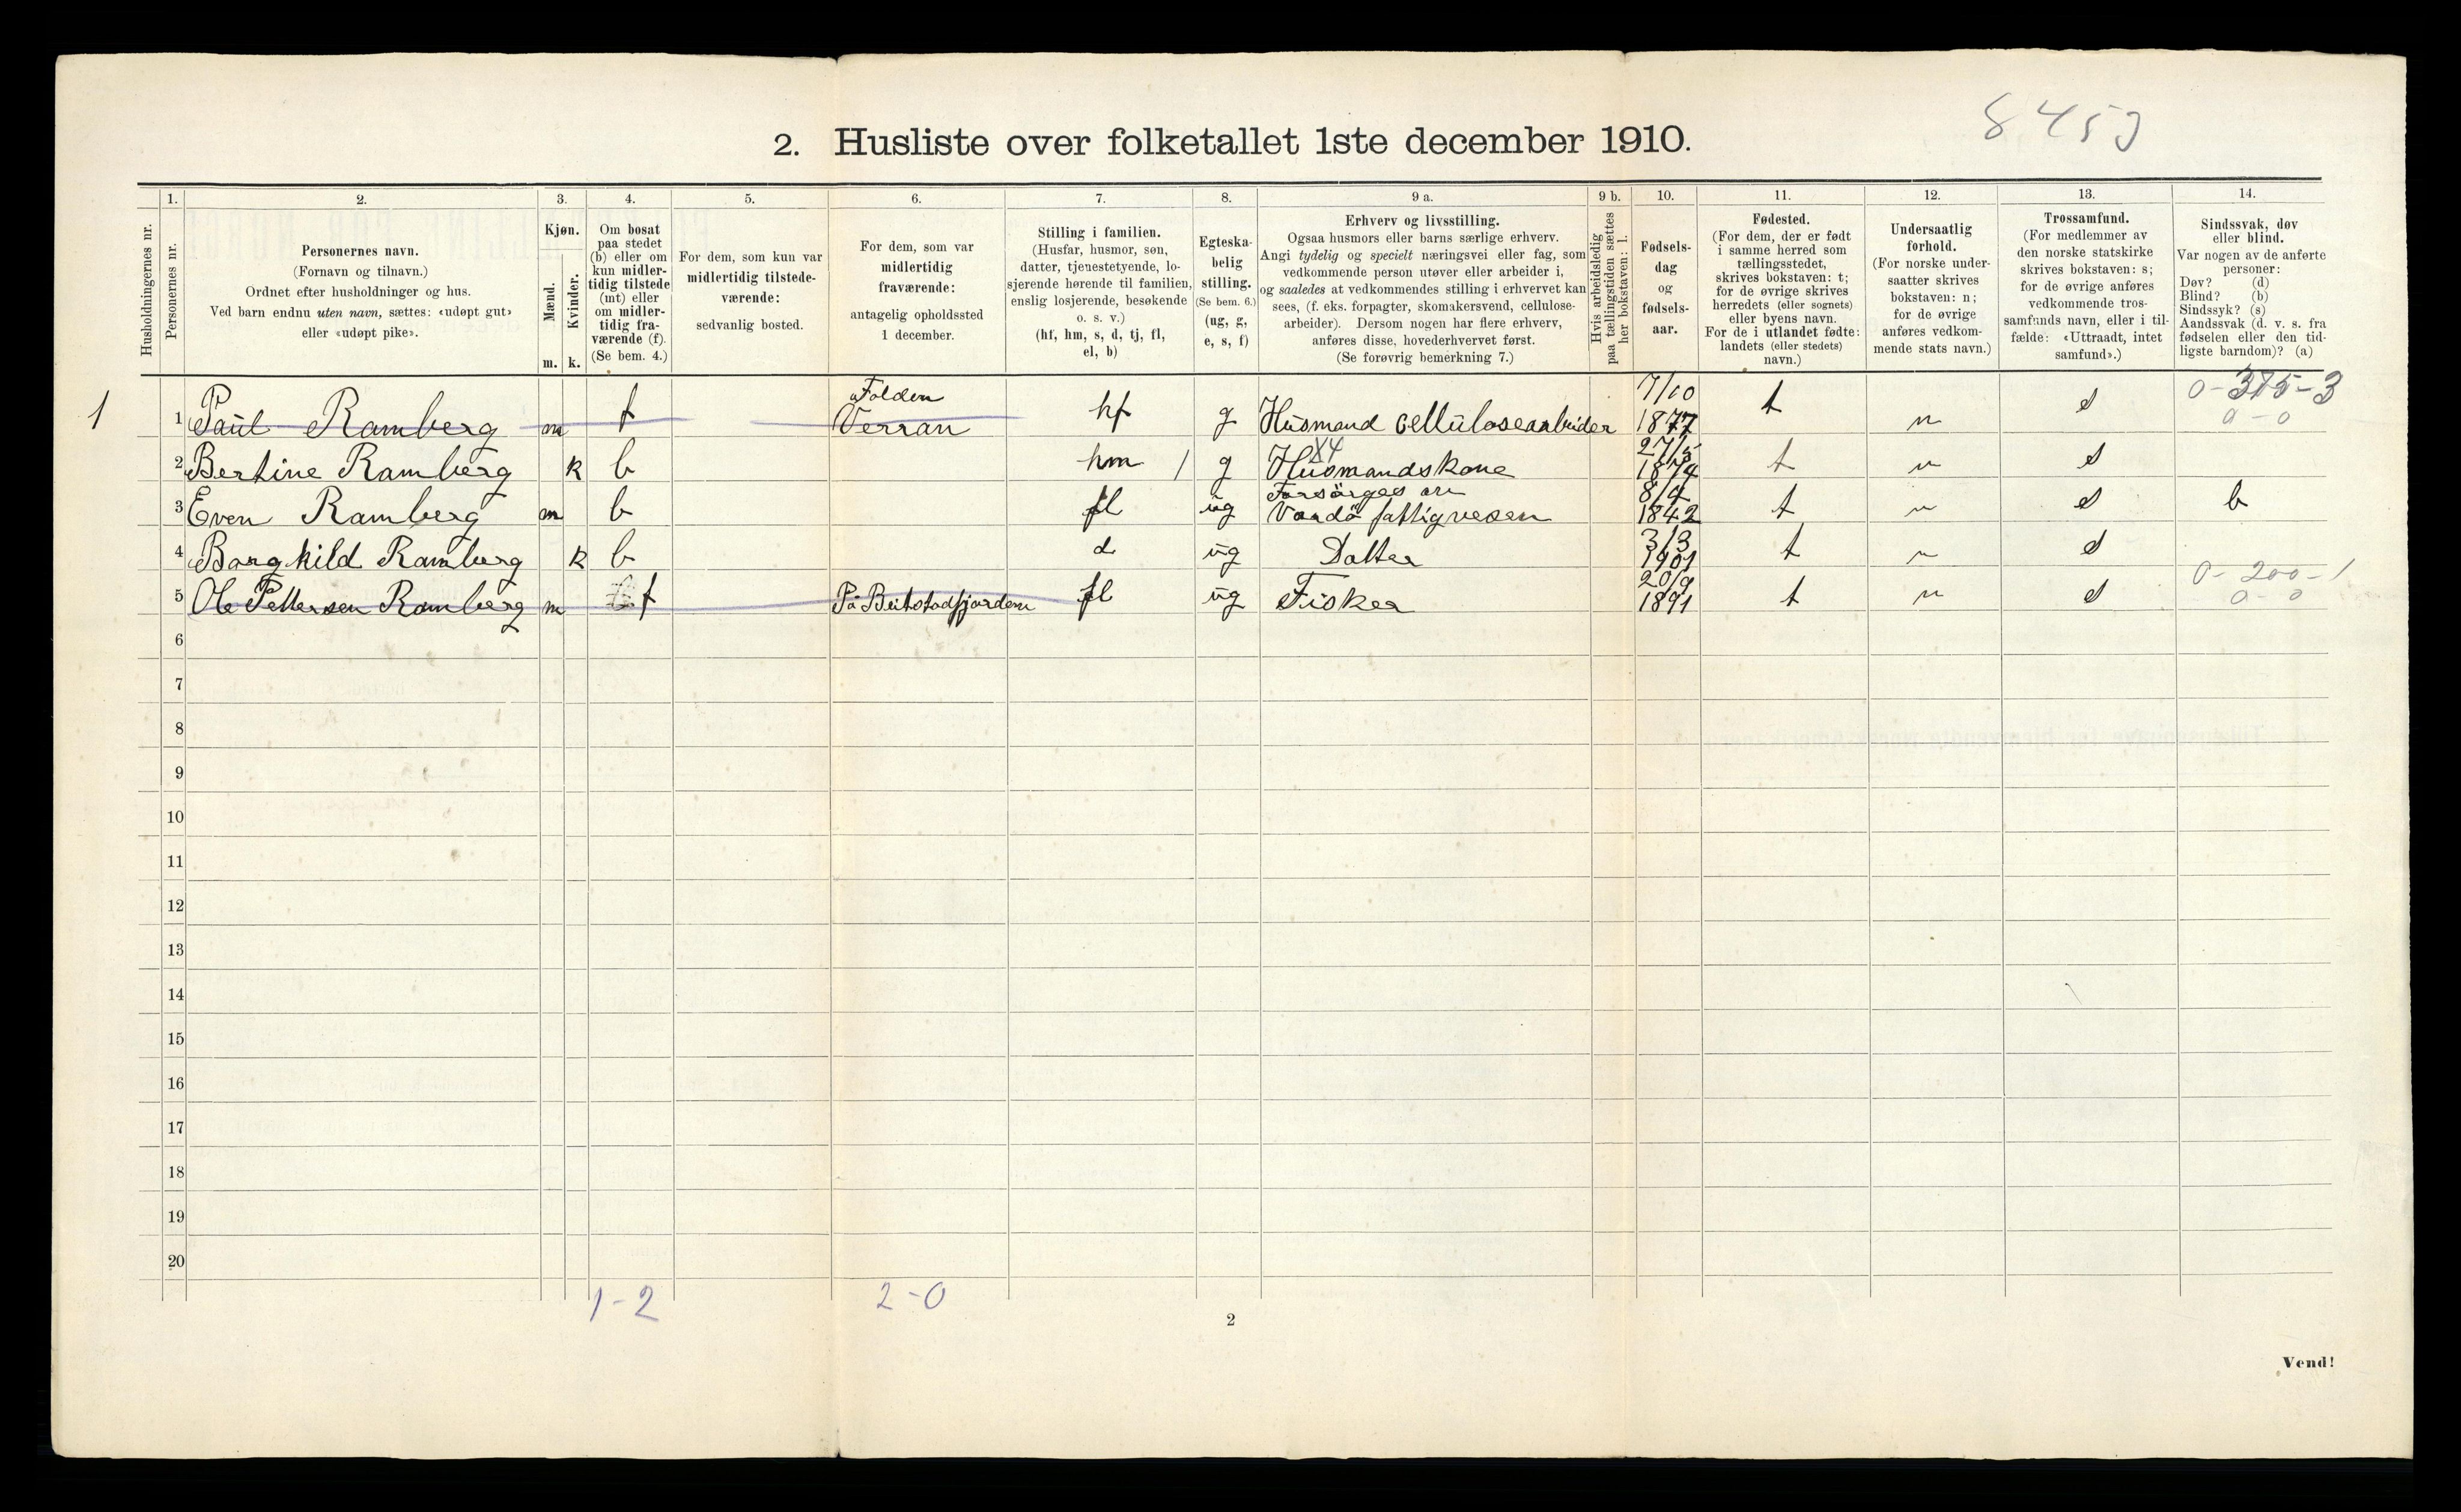 8453
2. Husliste over folketallet 1ste december 1910.
Husholdningernes nr.
1.
Personernes nr.
2.
Personernes navn.
(Fornavn og tilnavn.)
Ordnet efter husholdninger og hus.
Ved barn endnu uten navn, sættes: «udøpt gut»
eller «udøpt pike».
3.
Kjøn.
Mænd.
Kvinder.
m. k.
4.
Om bosat
paa stedet
(b) eller om
kun midler-
tidig tilstede
(mt) eller
om midler-
tidig fra-
værende (f).
(Se bem. 4.)
5.
For dem, som kun var
midlertidig tilstede-
værende:
sedvanlig bosted.
6.
For dem, som var
midlertidig
fraværende:
antagelig opholdssted
1 december.
7.
Stilling i familien.
(Husfar, husmor, søn,
datter, tjenestetyende, lo-
sjerende hørende til familien,
enslig losjerende, besøkende
o. s. v.)
(hf, hm, s, d, tj, fl,
el, b)
8.
Egteska-
belig
stilling.
(Se bem. 6.)
(ug, g,
e, s, f)
9 a.
Erhverv og livsstilling.
Ogsaa husmors eller barns særlige erhverv.
Angi tydelig og specielt næringsvei eller fag, som
vedkommende person utøver eller arbeider i,
og saaledes at vedkommendes stilling i erhvervet kan
sees, (f. eks. forpagter, skomakersvend, cellulose-
arbeider). Dersom nogen har flere erhverv,
anføres disse, hovederhvervet først.
(Se forøvrig bemerkning 7.)
9 b.
Hvis arbeidsledig
paa tællingstiden sættes
her bokstaven: l.
10.
Fødsels-
dag
og
fødsels-
aar.
11.
Fødested.
(For dem, der er født
i samme herred som
tællingsstedet,
skrives bokstaven: t;
for de øvrige skrives
herredets (eller sognets)
eller byens navn.
For de i utlandet fødte:
landets (eller stedets)
navn.)
12.
Undersaatlig
forhold.
(For norske under-
saatter skrives
bokstaven: n;
for de øvrige
anføres vedkom-
mende stats navn.)
13.
Trossamfund.
(For medlemmer av
den norske statskirke
skrives bokstaven: s;
for de øvrige anføres
vedkommende tros-
samfunds navn, eller i til-
fælde: «Uttraadt, intet
samfund».)
14.
Sindssvak, døv
eller blind.
Var nogen av de anførte
personer:
Døv? (d)
Blind? (b)
Sindssyk? (s)
Aandssvak (d. v. s. fra
fødselen eller den tid-
ligste barndom)? (a)
1 1 Paul Ramberg m f Folden Verran hf g Husmand Cellulosearbeider 7/10 1877 t n s 0-375-3 0-0
2 Bertine Ramberg k b hm / g X4 Husmandskone 27/5 1874 t n s
3 Even Ramberg m b fl ug Forsörges av Vandö fattigvesen 8/4 1842 t n s b
4 Borghild Ramberg k b d ug Datter 3/3 1901 t n s
5 Ole Pettersen Ramberg m f På Beitstadfjorden fl ug Fisker 20/9 1891 t n s 0-200-1 0-0
6
7
8
9
10
11
12
13
14
15
16
17
18
19
20
1-2 2-0
2
Vend!